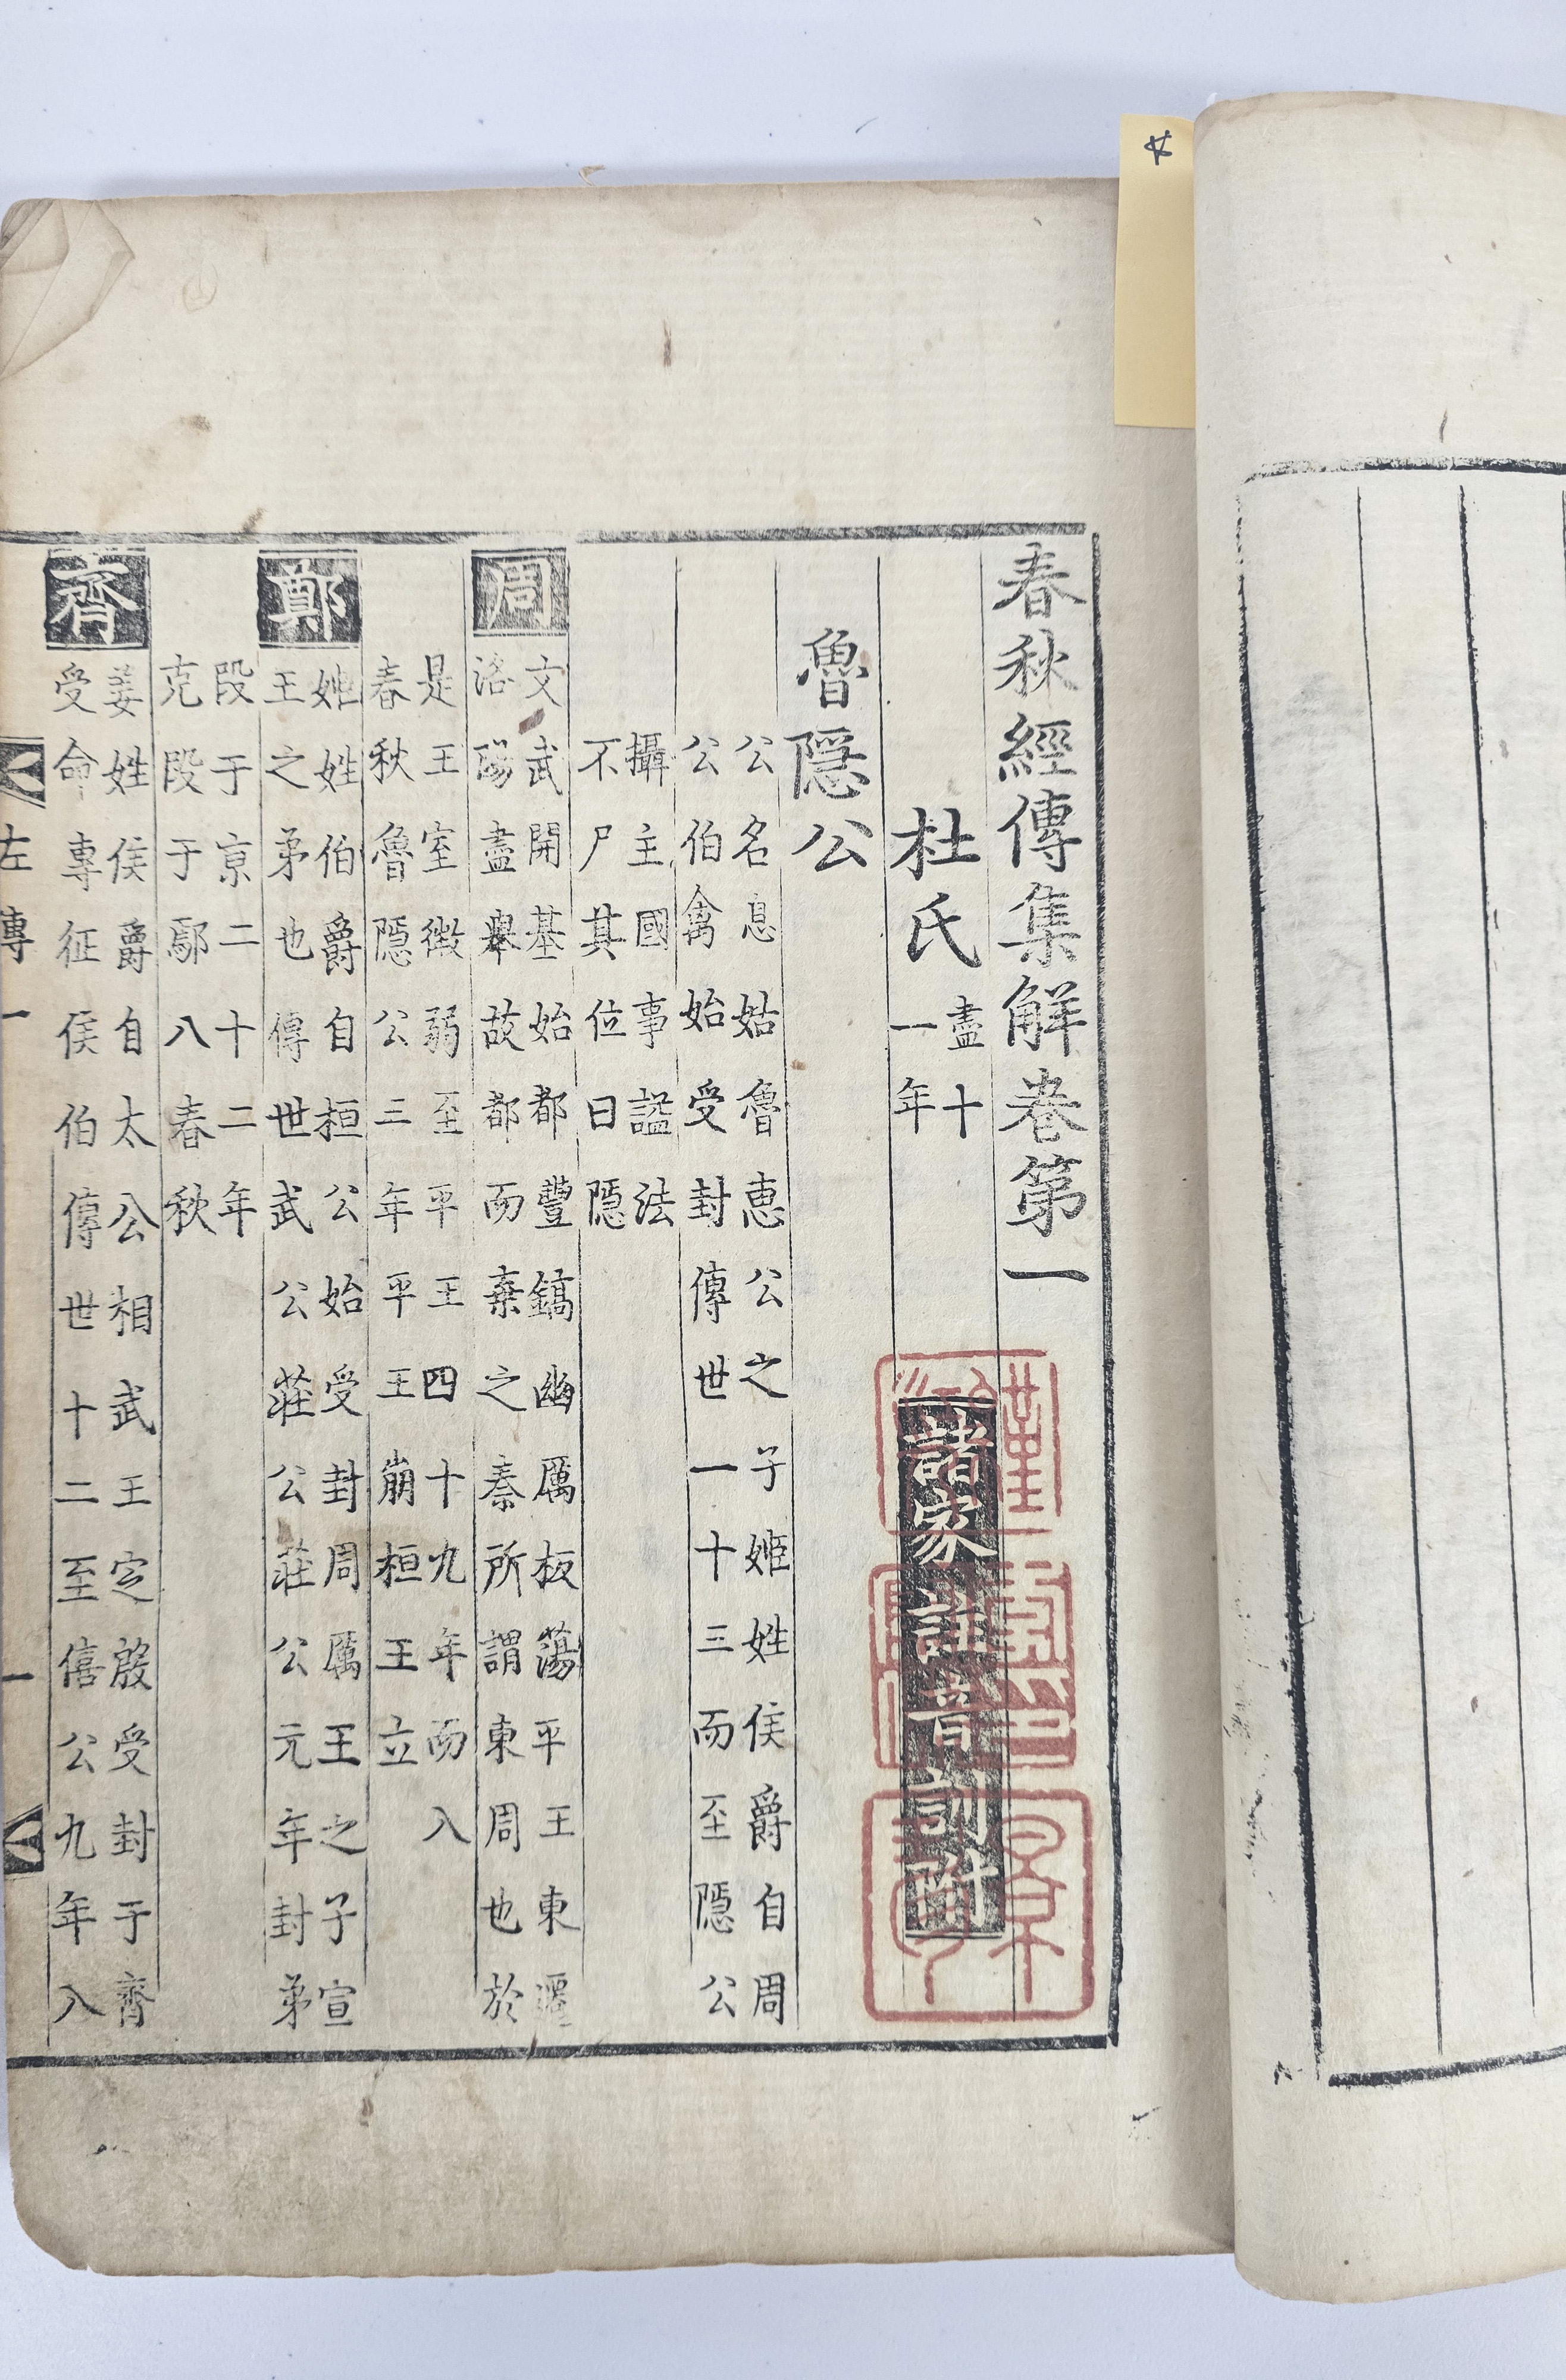 春秋經傳集解卷第一
杜氏
盡十
一年
諸家註音訓附
魯隱公
公名息姑魯惠公之子姬姓侯爵自周
公伯禽始受封傳世一十三而至隱公
攝主國事謚法
不尸其位曰隱
周
文武開基始都豐鎬幽厲板蕩平王東遷
洛陽盡舉故都而棄之秦所謂東周也於
是王室微弱至平王四十九年而入
春秋魯隱公三年平王崩桓王立
鄭
姬姓伯爵自桓公始受封周厲王之子宣
王之弟也傳世武公莊公莊公元年封弟
段于京二十二年
克段于鄢入春秋
齊
姜姓侯爵自太公相武王定殷受封于齊
受命專征侯伯傳世十二至僖公九年入
左傳一
一